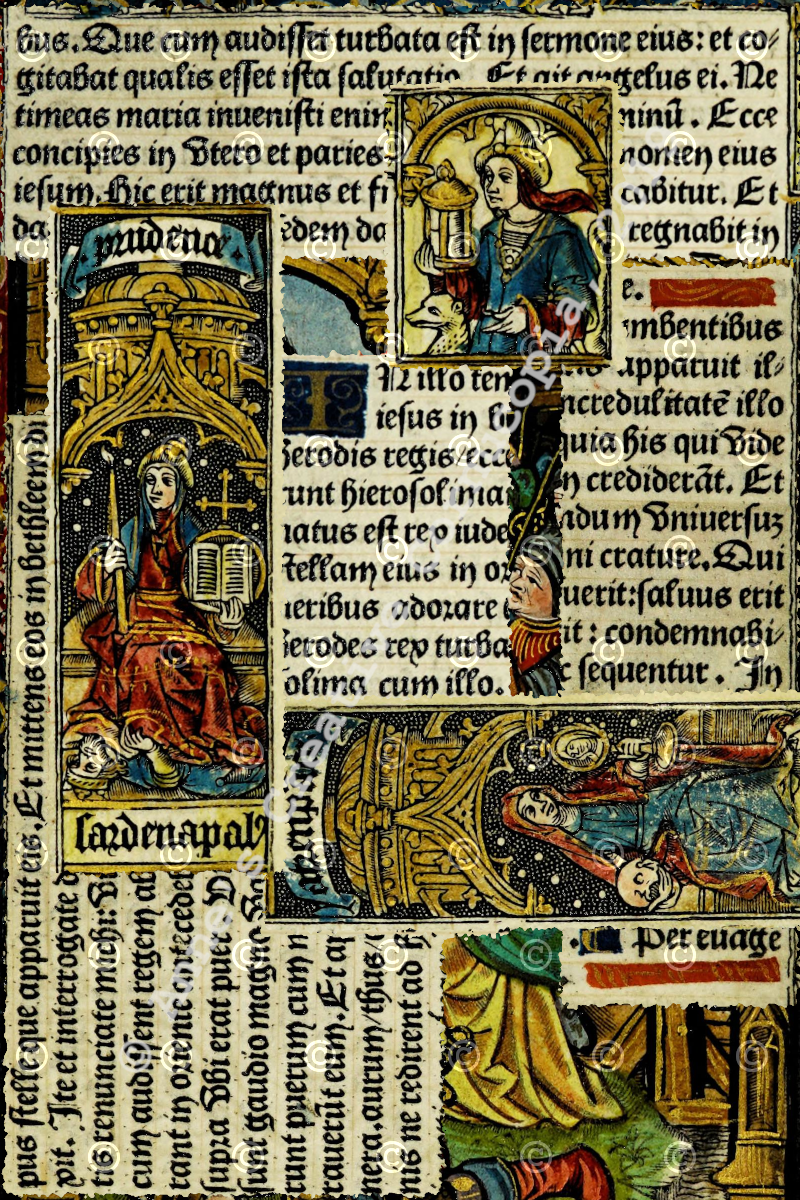 bus. Que cum audisset turbata est in sermone eius: et co-
gitabat qualis esset ista salutatio. Et ait angelus ei. Ne
timeas maria invenisti enim minū. Ecce
concipies in utero et paries nomen eius
iesum. Hic erit magnus et fi cabitur. Et
da edem da regnabit in
prudence.
sardenapal9
e.
mbentibus
apparuit il-
ncredulitatē illo
quia his qui vide
n crediderāt. Et
ndum universuz
ni crature. Qui
uerit: saluus erit
it: condemnabi-
c sequentur. In
IN illo tem
iesus in be
herodis regis/ecce
unt hierosolimam
natus est rex iude
stellam eius in or
neribus adorare
herodes rex turba
olima cum illo.
atrempe
Per evage
pus stelle que apparuit eis. Et mittens eos in bethleem di
pit. Ite et interrogate d
tis renunciate michi: v
cum audissent regem ab
rant in oriente antecedet
supra ubi erat puer. V
sunt gaudio magno va
runt puerum cum m
raverūt eum. Et ap
nera. aurum/thus/
nis ne redirent ad h